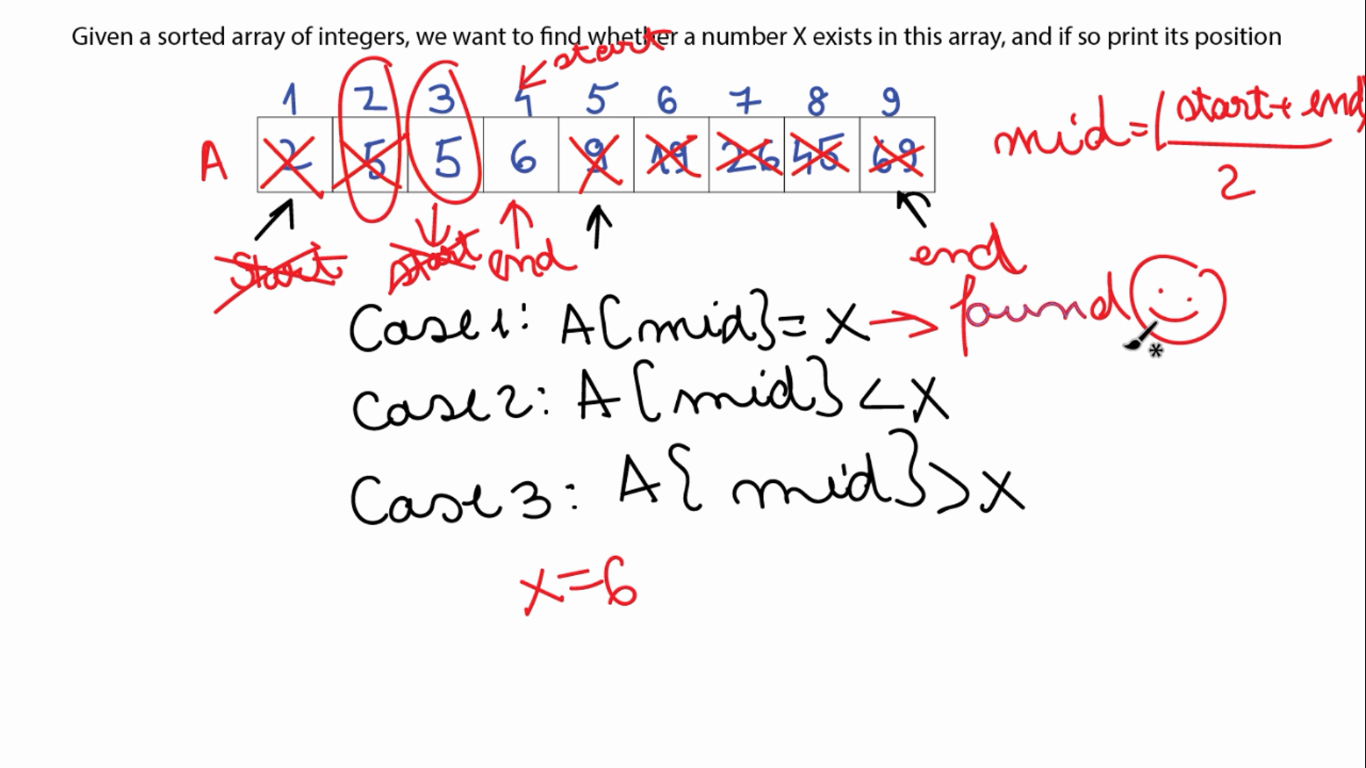 Given a sorted array of integers, we want to find whether a number X exists in this array, and if so print its position
start
1 2 3 4 5 6 7 8 9
mid=(start+end
2
A 2 5 5 6 9 19 26 45 69
start start end end
Case1: A[mid]=X→found
Case2: A[mid]<X
Case3: A[mid]>X
x=6